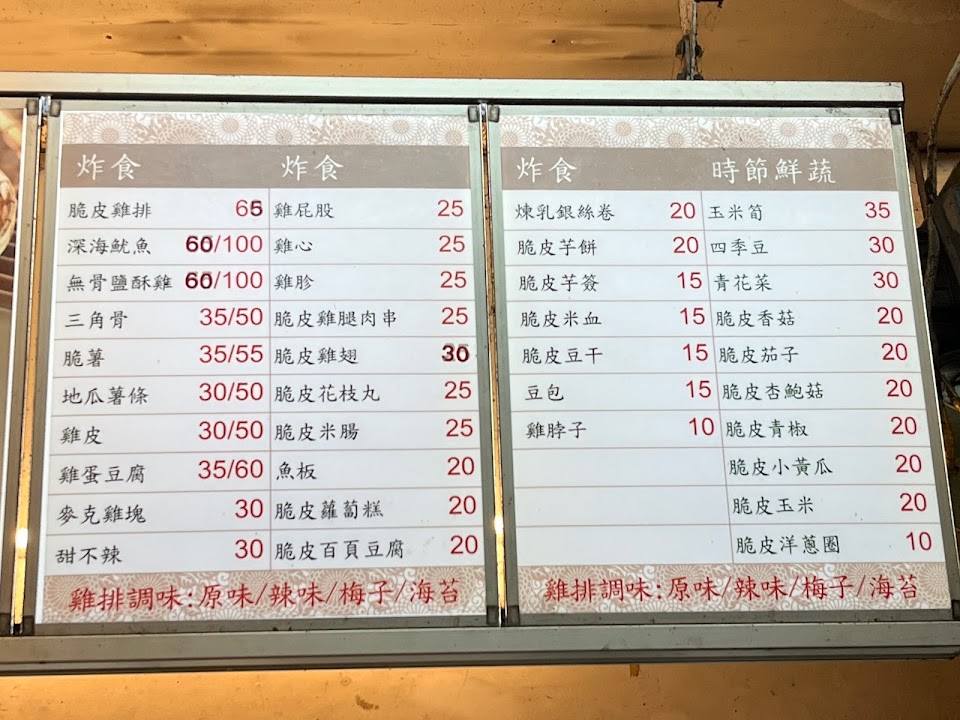 炸食
脆皮雞排 65
深海魷魚 60/100
無骨鹽酥雞 60/100
三角骨 35/50
脆薯 35/55
地瓜薯條 30/50
雞皮 30/50
雞蛋豆腐 35/60
麥克雞塊 30
甜不辣 30
炸食
雞屁股 25
雞心 25
雞胗 25
脆皮雞腿肉串 25
脆皮雞翅 30
脆皮花枝丸 25
脆皮米腸 25
魚板 20
脆皮蘿蔔糕 20
脆皮百頁豆腐 20
雞排調味:原味/辣味/梅子/海苔
炸食
煉乳銀絲卷 20
脆皮芋餅 20
脆皮芋簽 15
脆皮米血 15
脆皮豆干 15
豆包 15
雞脖子 10
時節鮮蔬
玉米筍 35
四季豆 30
青花菜 30
脆皮香菇 20
脆皮茄子 20
脆皮杏鮑菇 20
脆皮青椒 20
脆皮小黃瓜 20
脆皮玉米 20
脆皮洋蔥圈 10
雞排調味:原味/辣味/梅子/海苔